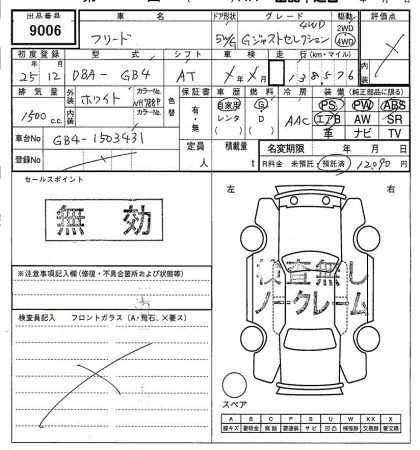 出品番号 車名 ドア形状 グレード 駆動 評価点
9006 フリード 5W/G Gジャストセレクション 4WD 2WD 4WD
初度登録 型式 シフト 車検 走行(km・マイル)
25年12月 DBA-GB4 AT 年 月 138576
排気量 外装 ホワイト カラーNo. NH788P 色替 保証書 車歴 燃料 冷房 装備(純正部品に限る)
1500c.c. 内装 カラーNo. 有・無 自家用 レンタ ( ) G D ( ) AAC PS PW ABS
エアB AW SR
革 ナビ TV
車台No GB4-1503431
定員 人 積載量 t 名変期限 年 月 日
登録No R料金 未預託・預託済 12,090円
セールスポイント
無効
※注意事項記入欄(修復・不具合箇所および状態等)
検査員記入 フロントガラス(A・飛石、X要ス)
左 右
検査無し
ノークレーム
スペア
A B C P S U W X XX X